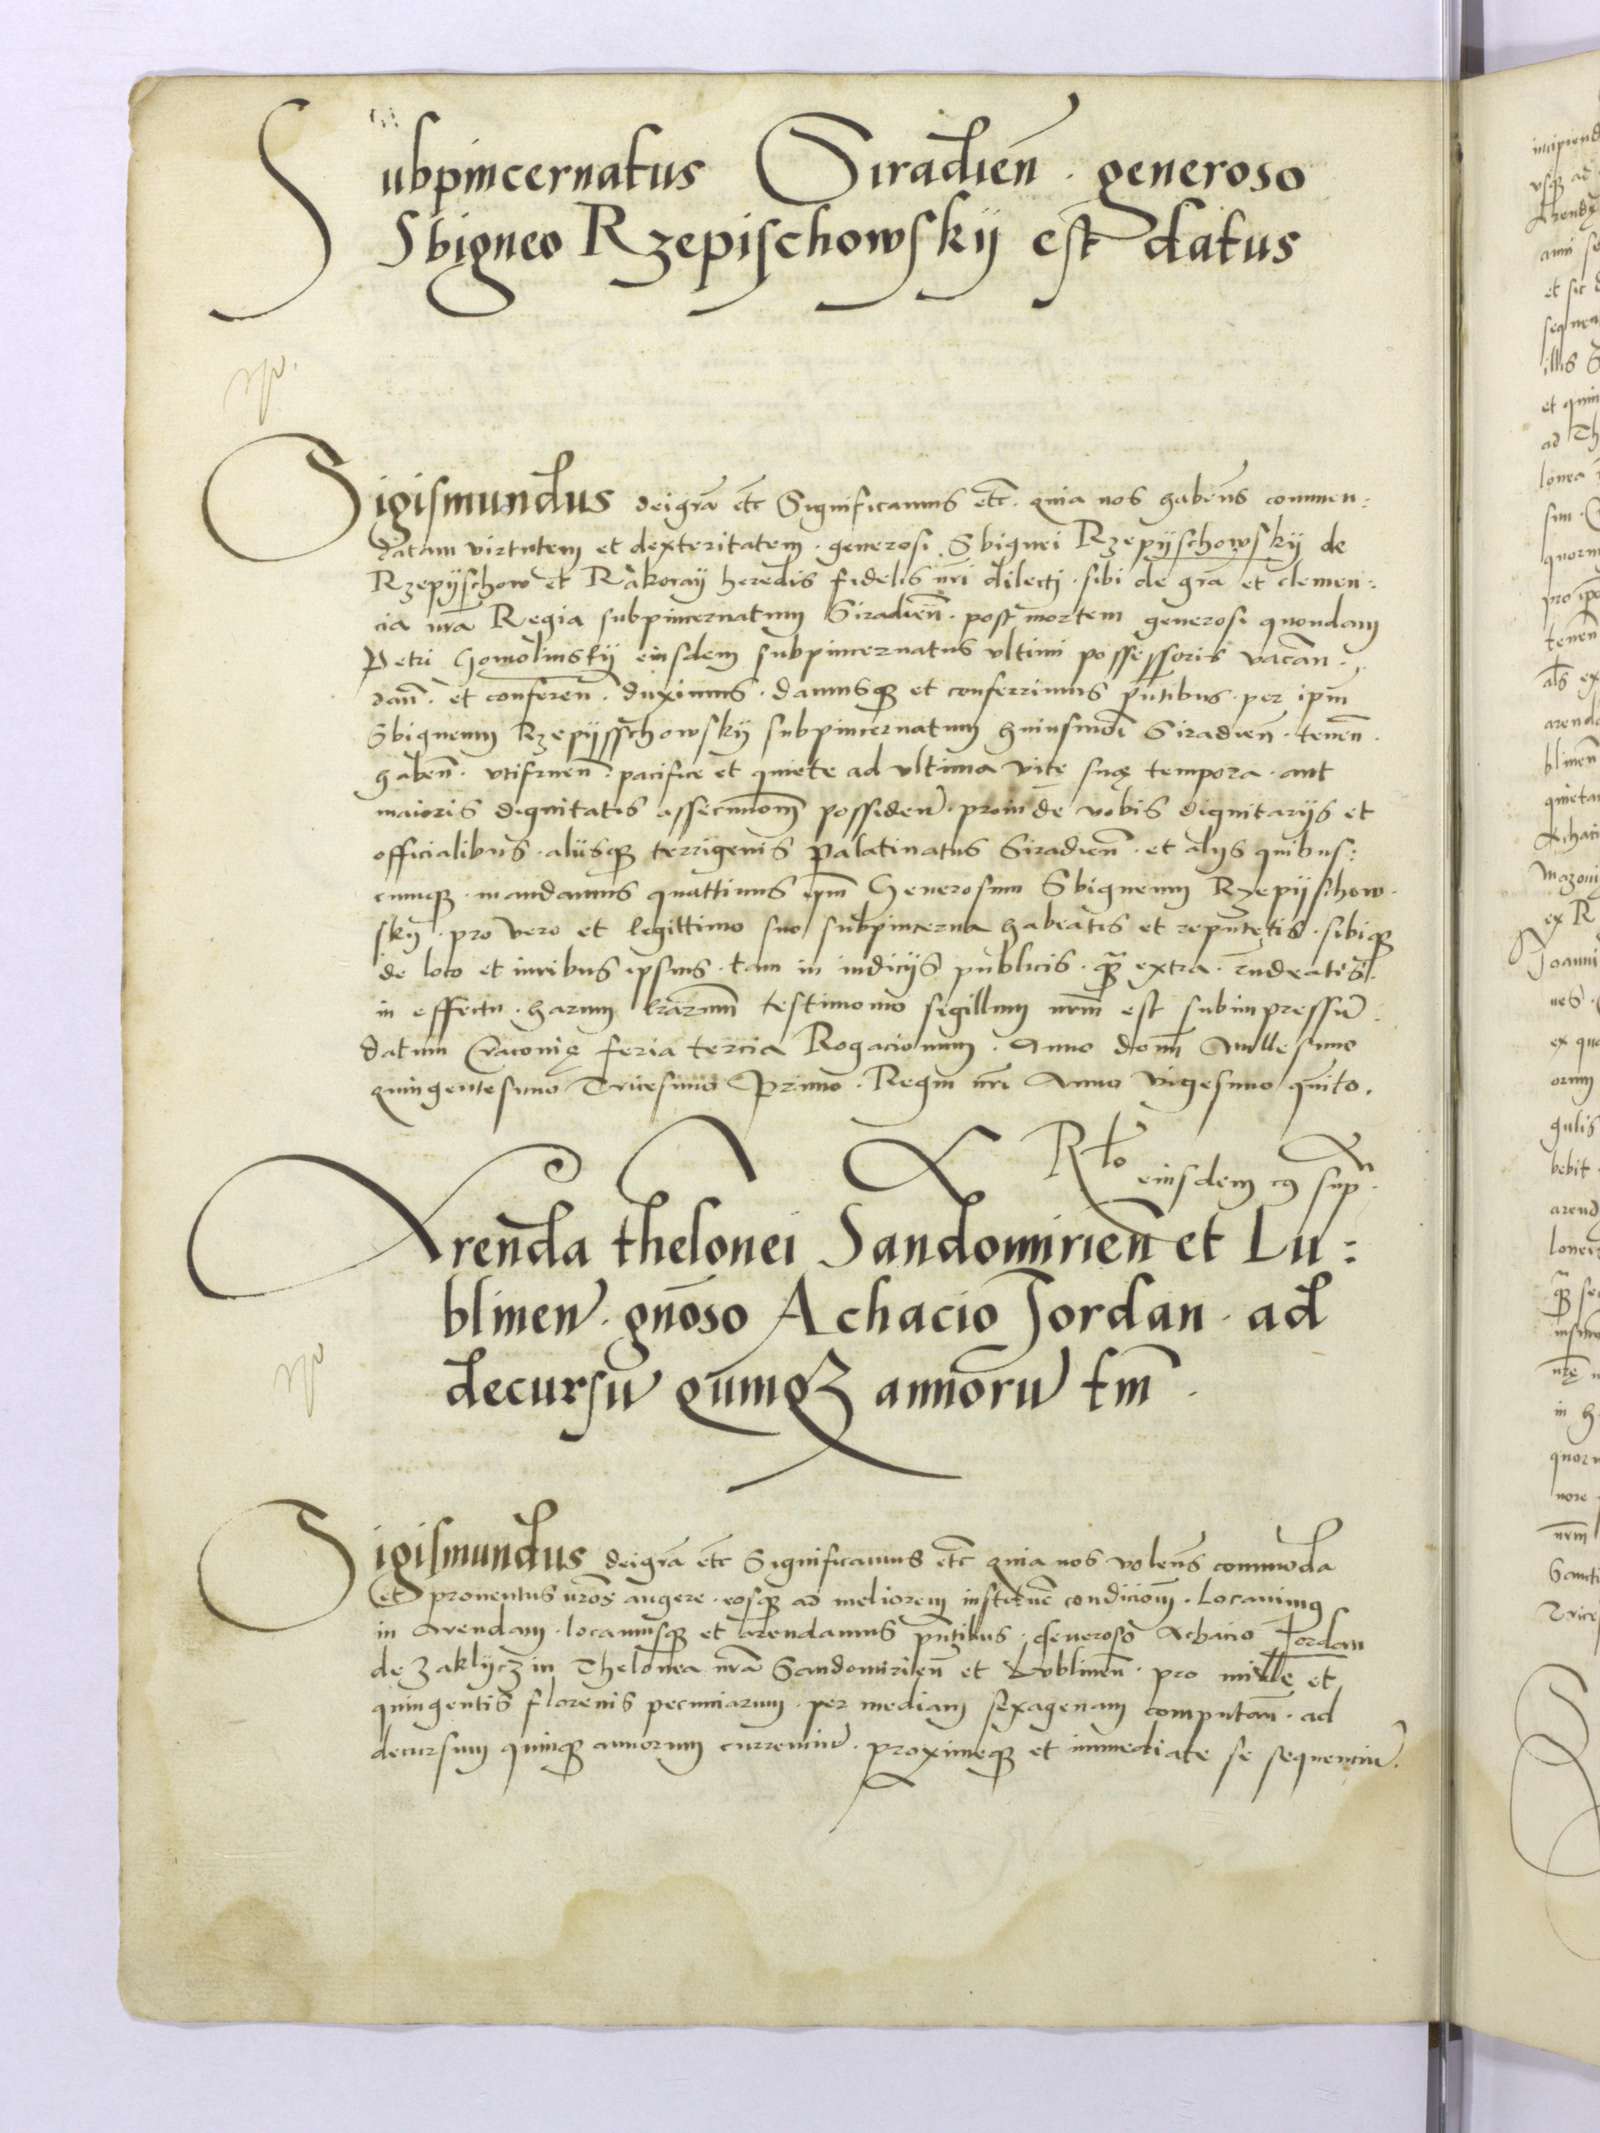 Subpincernatus Siradien̄ · generoso
Sbigneo Rzepischowskÿ est datus
Sigismundus dei gr̄a etc̄ Significamus etc̄ · quia nos haben̄s commen:
datam virtutem et dexteritatem · generosi Sbignei Rzepÿschowskÿ de
Rzepÿschow et Rakowaÿ heredis fidelis nr̄i dilecti · sibi de gr̄a et clemen:
cia nr̄a Regia subpincernatum Siradien̄ · post mortem generosi quondam
Petri Gomolinskÿ eiusdem subpincernatus ultimi possessoris vacan̄ ·
dan̄ · et conferen̄ · duximus · damusqꝫ et conferrimus pn̄tibus · per ip̄m
Sbigneum Rzepÿsschowskÿ subpincernatum huiusmodi Siradien̄ · tenen̄ ·
haben̄ · utifruen̄ · pacifice et quiete ad ultima vite suę tempora · aut
maioris dignitatis assecucionem̄ possiden̄ · proinde vobis dignitarijs et
officialibus · alijsqꝫ terrigenis Palatinatus Siradien̄ · et alijs quibus:
cunqꝫ · mandamus quattinus ip̄m Generosum Sbigneum Rzepÿschow ·
skÿ · pro vero et legittimo suo subpincerna habeatis et reputetis · sibiqꝫ
de loco et iuribus ipsius · tam in iudicijs publicis · qꝫ extra · r̄ndeatis
in effectu · harum lr̄arum testimonio sigillum nr̄m est subimpressū ·
datum Cracovię feria tercia Rogacionum · Anno dom̄ Millesimo
quingentesimo Tricesimo Primo · Regni nr̄i Anno vigesimo quīto ·
Rl̄o eiusdem cꝰ sup̄ ·
Arenda thelonei Sandomirien̄ et Lu:
blinen̄ · gn̄oso Achacio Jordan · ad
decursū quīnqꝫ annorū tm̄ ·
Sigismundus dei gr̄a etc̄ Significamus etc̄ quia nos volen̄s commoda
et proventus nr̄os augere · eosqꝫ ad meliorem instituere condicionem̄ · Locavimus
in Arendam · locamusqꝫ et arendamus pn̄tibus · Generoso Achacio Jordan
de Zaklÿczin Thelonea nr̄a Sandomirien̄ et Lublinen̄ · pro mille et
quingentis florenis pecuniarum · per mediam sexagenam computan̄ · ad
decursum quinqꝫ annorum currenciū · proximeqꝫ et immediate se sequenciū ·